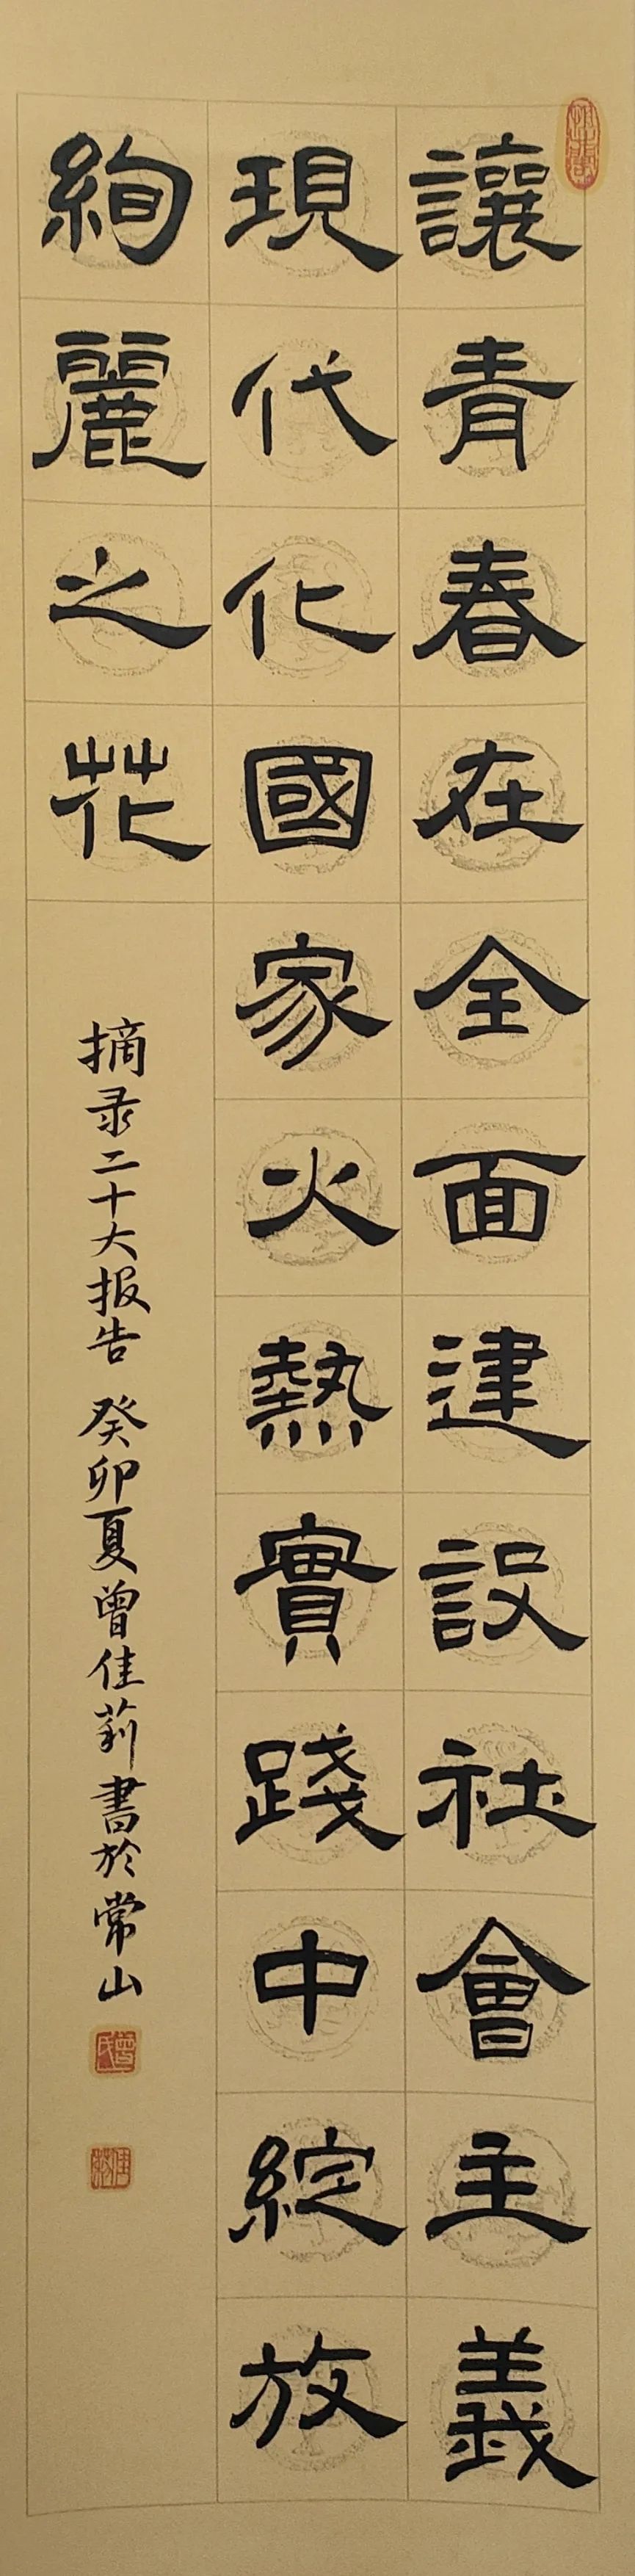 讓青春在全面建設社會主義
現代化國家火熱實踐中綻放
絢麗之花
摘录二十大报告 癸卯夏曾佳莉書於常山
曾氏